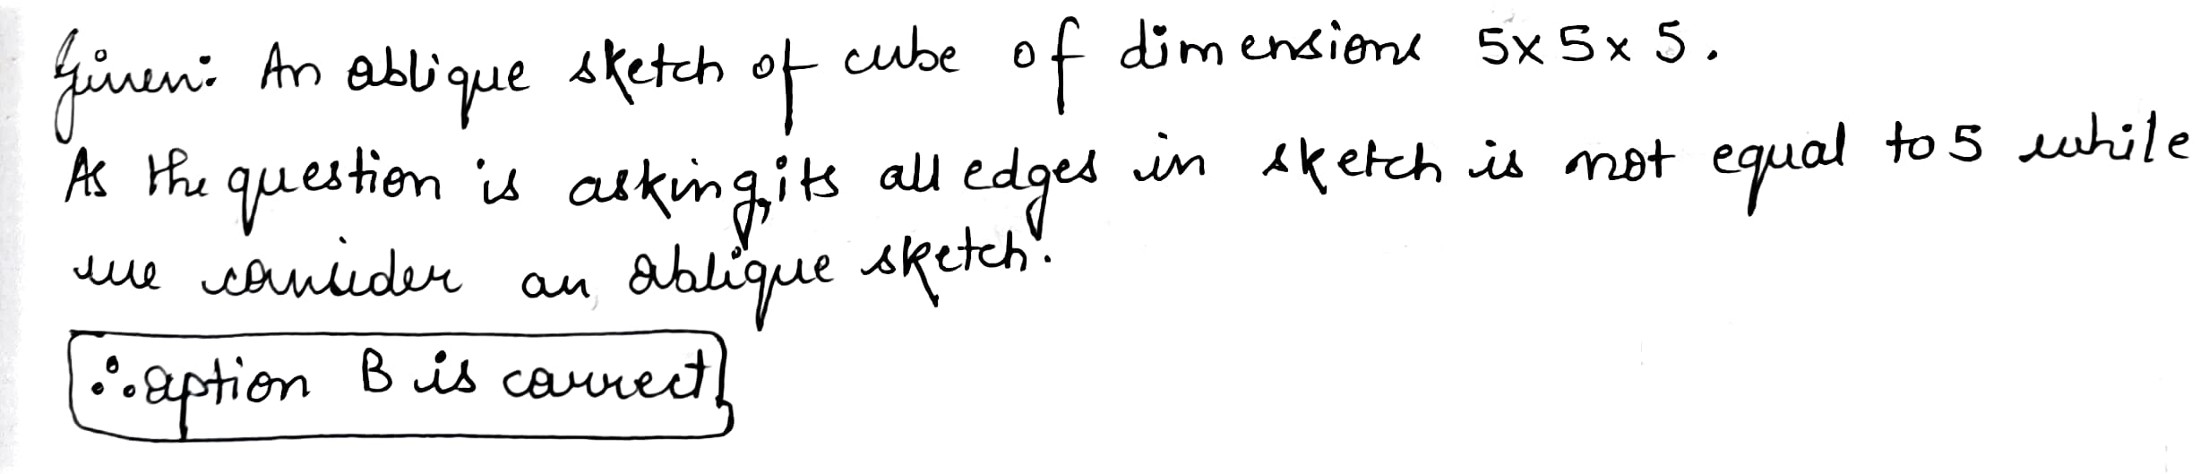 Given: An oblique sketch of cube of dimensions 5x5x5.
As the question is asking, its all edges in sketch is not equal to 5 while
we consider an oblique sketch.
∴ option B is correct